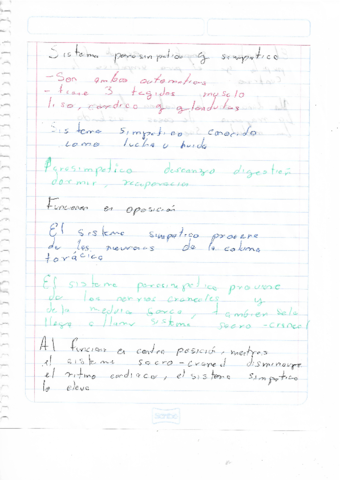 Sistema parasimpatico y simpatico
- Son ambos automaticos
- tiene 3 tegidos musculo
liso, cardiaco y glandulas
Sistema simpatico conocido
como lucha o huida
Parasimpatico descanso digestión
dormir, recuperacion
Funcionan en oposición
El sisteme simpatico proviene
de las neuronas de la columna
torácica
El sistema parasimpatico proviene
de los nervios craneales y
de la medula sacra, tambien se le
llega a llamar sisteme sacro-craneal
Al funcionar en contra posición, mientras
el sisteme sacro-craneal disminuye
el ritmo cardiaco, el sisteme simpatico
lo eleva